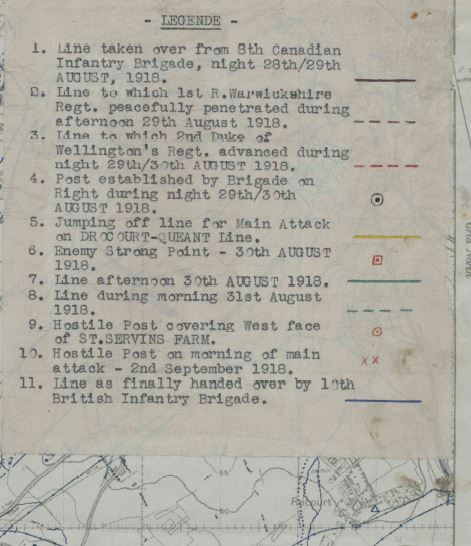 - LEGENDE -
1. Line taken over from 8th Canadian
Infantry Brigade, night 28th/29th
AUGUST, 1918.
2. Line to which 1st R.Warwickshire
Regt. peacefully penetrated during
afternoon 29th August 1918.
3. Line to which 2nd Duke of
Wellington's Regt. advanced during
night 29th/30th AUGUST 1918.
4. Post established by Brigade on
Right during night 29th/30th
AUGUST 1918.
5. Jumping off line for Main Attack
on DROCOURT-QUEANT Line.
6. Enemy Strong Point - 30th AUGUST
1918.
7. Line afternoon 30th AUGUST 1918.
8. Line during morning 31st August
1918.
9. Hostile Post covering West face
of ST.SERVINS FARM.
10. Hostile Post on morning of main
attack - 2nd September 1918.
xx
11. Line as finally handed over by 10th
British Infantry Brigade.
55
50
Récourt